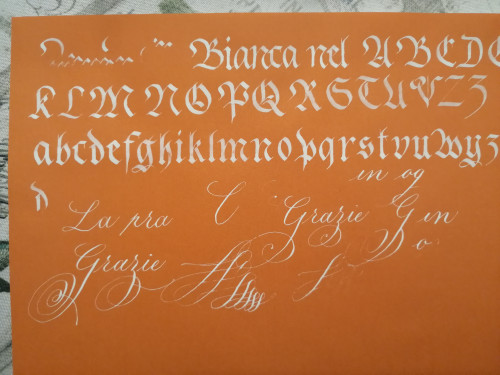 Bianca nel ABCDE
KLMNOPQRSTUVZ3
abcdefghiklmnopqrstvuwyz
en og
La pra C Grazie Gen
Grazie